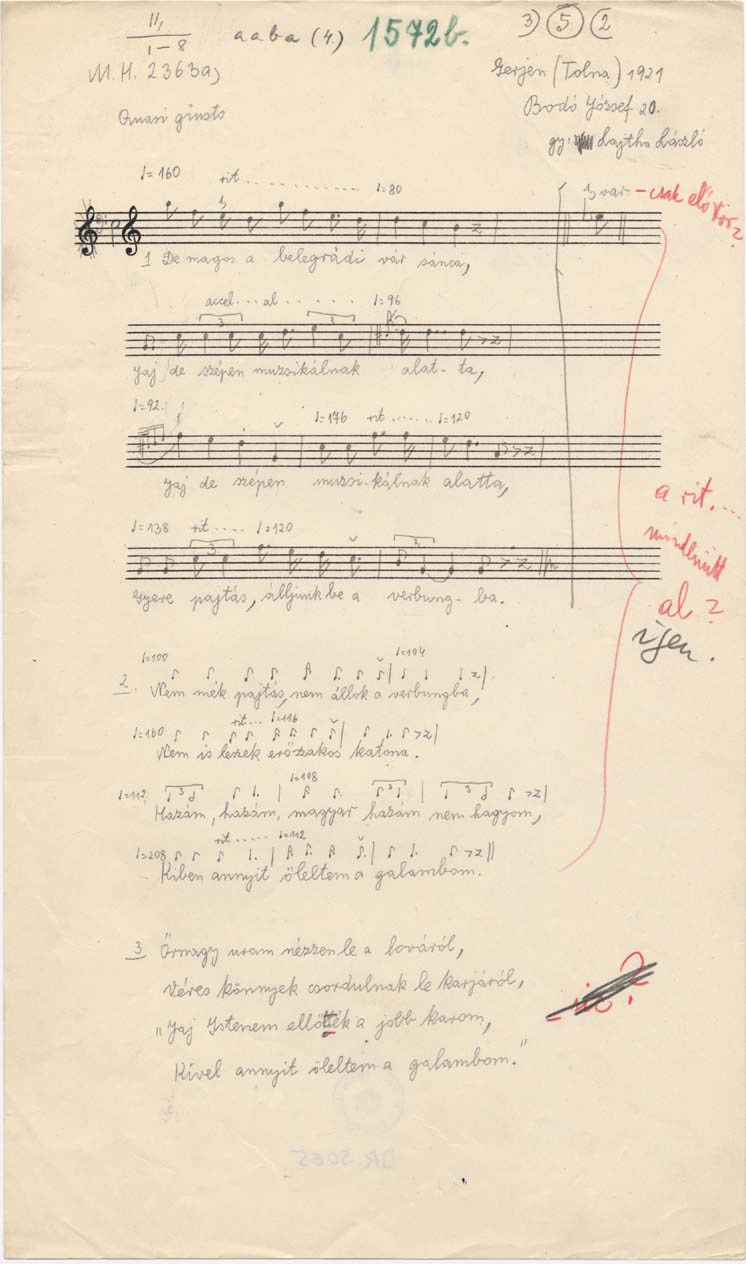 II,
1–8
aaba (4.)
1572b.
3) 5 (2
M.H. 2363a)
Gerjen (Tolna) 1921
Quasi giusto
Bodó József 20.
gy: Lajtha László
♩=160 rit............ ♩=80
1) var – csak először?
1 De magos a belegrádi vár sánca,
accel...al...... ♩=96
3 3
Jaj de szépen muzsikálnak alat-ta,
♩=92. ♩=176 rit...... ♩=120
Jaj de szépen muzsi-kálnak alatta,
♩=138 rit..... ♩=120
3 3
Gyere pajtás, álljunk be a verbung-ba.
a rit....
mindenütt
al?
igen.
♩=100 ♩=104
2. Nem mék pajtás, nem állok a verbungba,
♩=160 rit... ♩=116
Nem is leszek erőszakos katona.
♩=112. 3 ♩=108 3 3
Hazám, hazám, magyar hazám nem hagyom,
♩=208 rit..... ♩=112
Kiben annyit öleltem a galambom.
3 Őrnagy uram nézzen le a lováról,
Véres könnyek csordulnak le karjáról,
„Jaj Istenem ellőtték a jobb karom,
Kivel annyit öleltem a galambom."